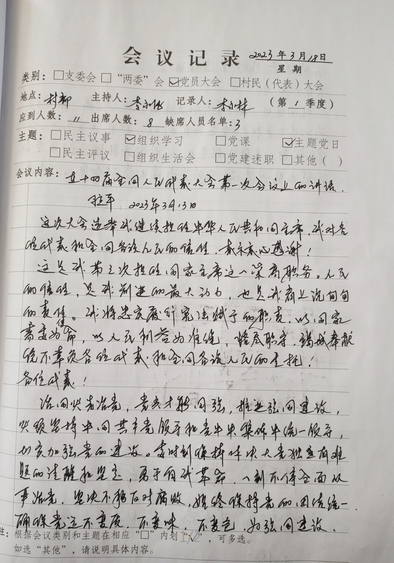 会议记录 2023年3月18日
星期
类别：□支委会 □“两委”会 ☑党员大会 □村民（代表）大会
地点：村部 主持人：李 记录人： （第1季度）
应到人数：11 出席人数：8 缺席人员名单：3
主题：□民主议事 ☑组织学习 □党课 ☑主题党日
□民主评议 □组织生活会 □党建述职 □其他（ ）
会议内容：在十四届全国人民代表大会第一次会议上的讲话
2023年3月13日
这次大会选举我继续担任中华人民共和国主席，我对各
位代表和全国各族人民的信任，表示衷心感谢！
这是我第三次担任国家主席这一崇高职务。人民
的信任，是我前进的最大动力，也是我肩上沉甸甸
的责任。我将忠实履行宪法赋予的职责，以国家
需要为命，以人民利益为准绳，恪尽职守，竭诚奉献
绝不辜负各位代表和全国各族人民的重托！
各位代表！
治国必先治党，党兴才能国强，推进强国建设，
必须坚持中国共产党领导和党中央集中统一领导，
切实加强党的建设。要时刻保持解决大党独有难
题的清醒和坚定，勇于自我革命，一刻不停全面从
严治党，坚决不移反对腐败，始终保持党的团结统一
确保党永不变质、不变味、不变色，为强国建设
注：根据会议类别和主题在相应“□”内划“√”，可多选。
如选“其他”，请说明具体内容。